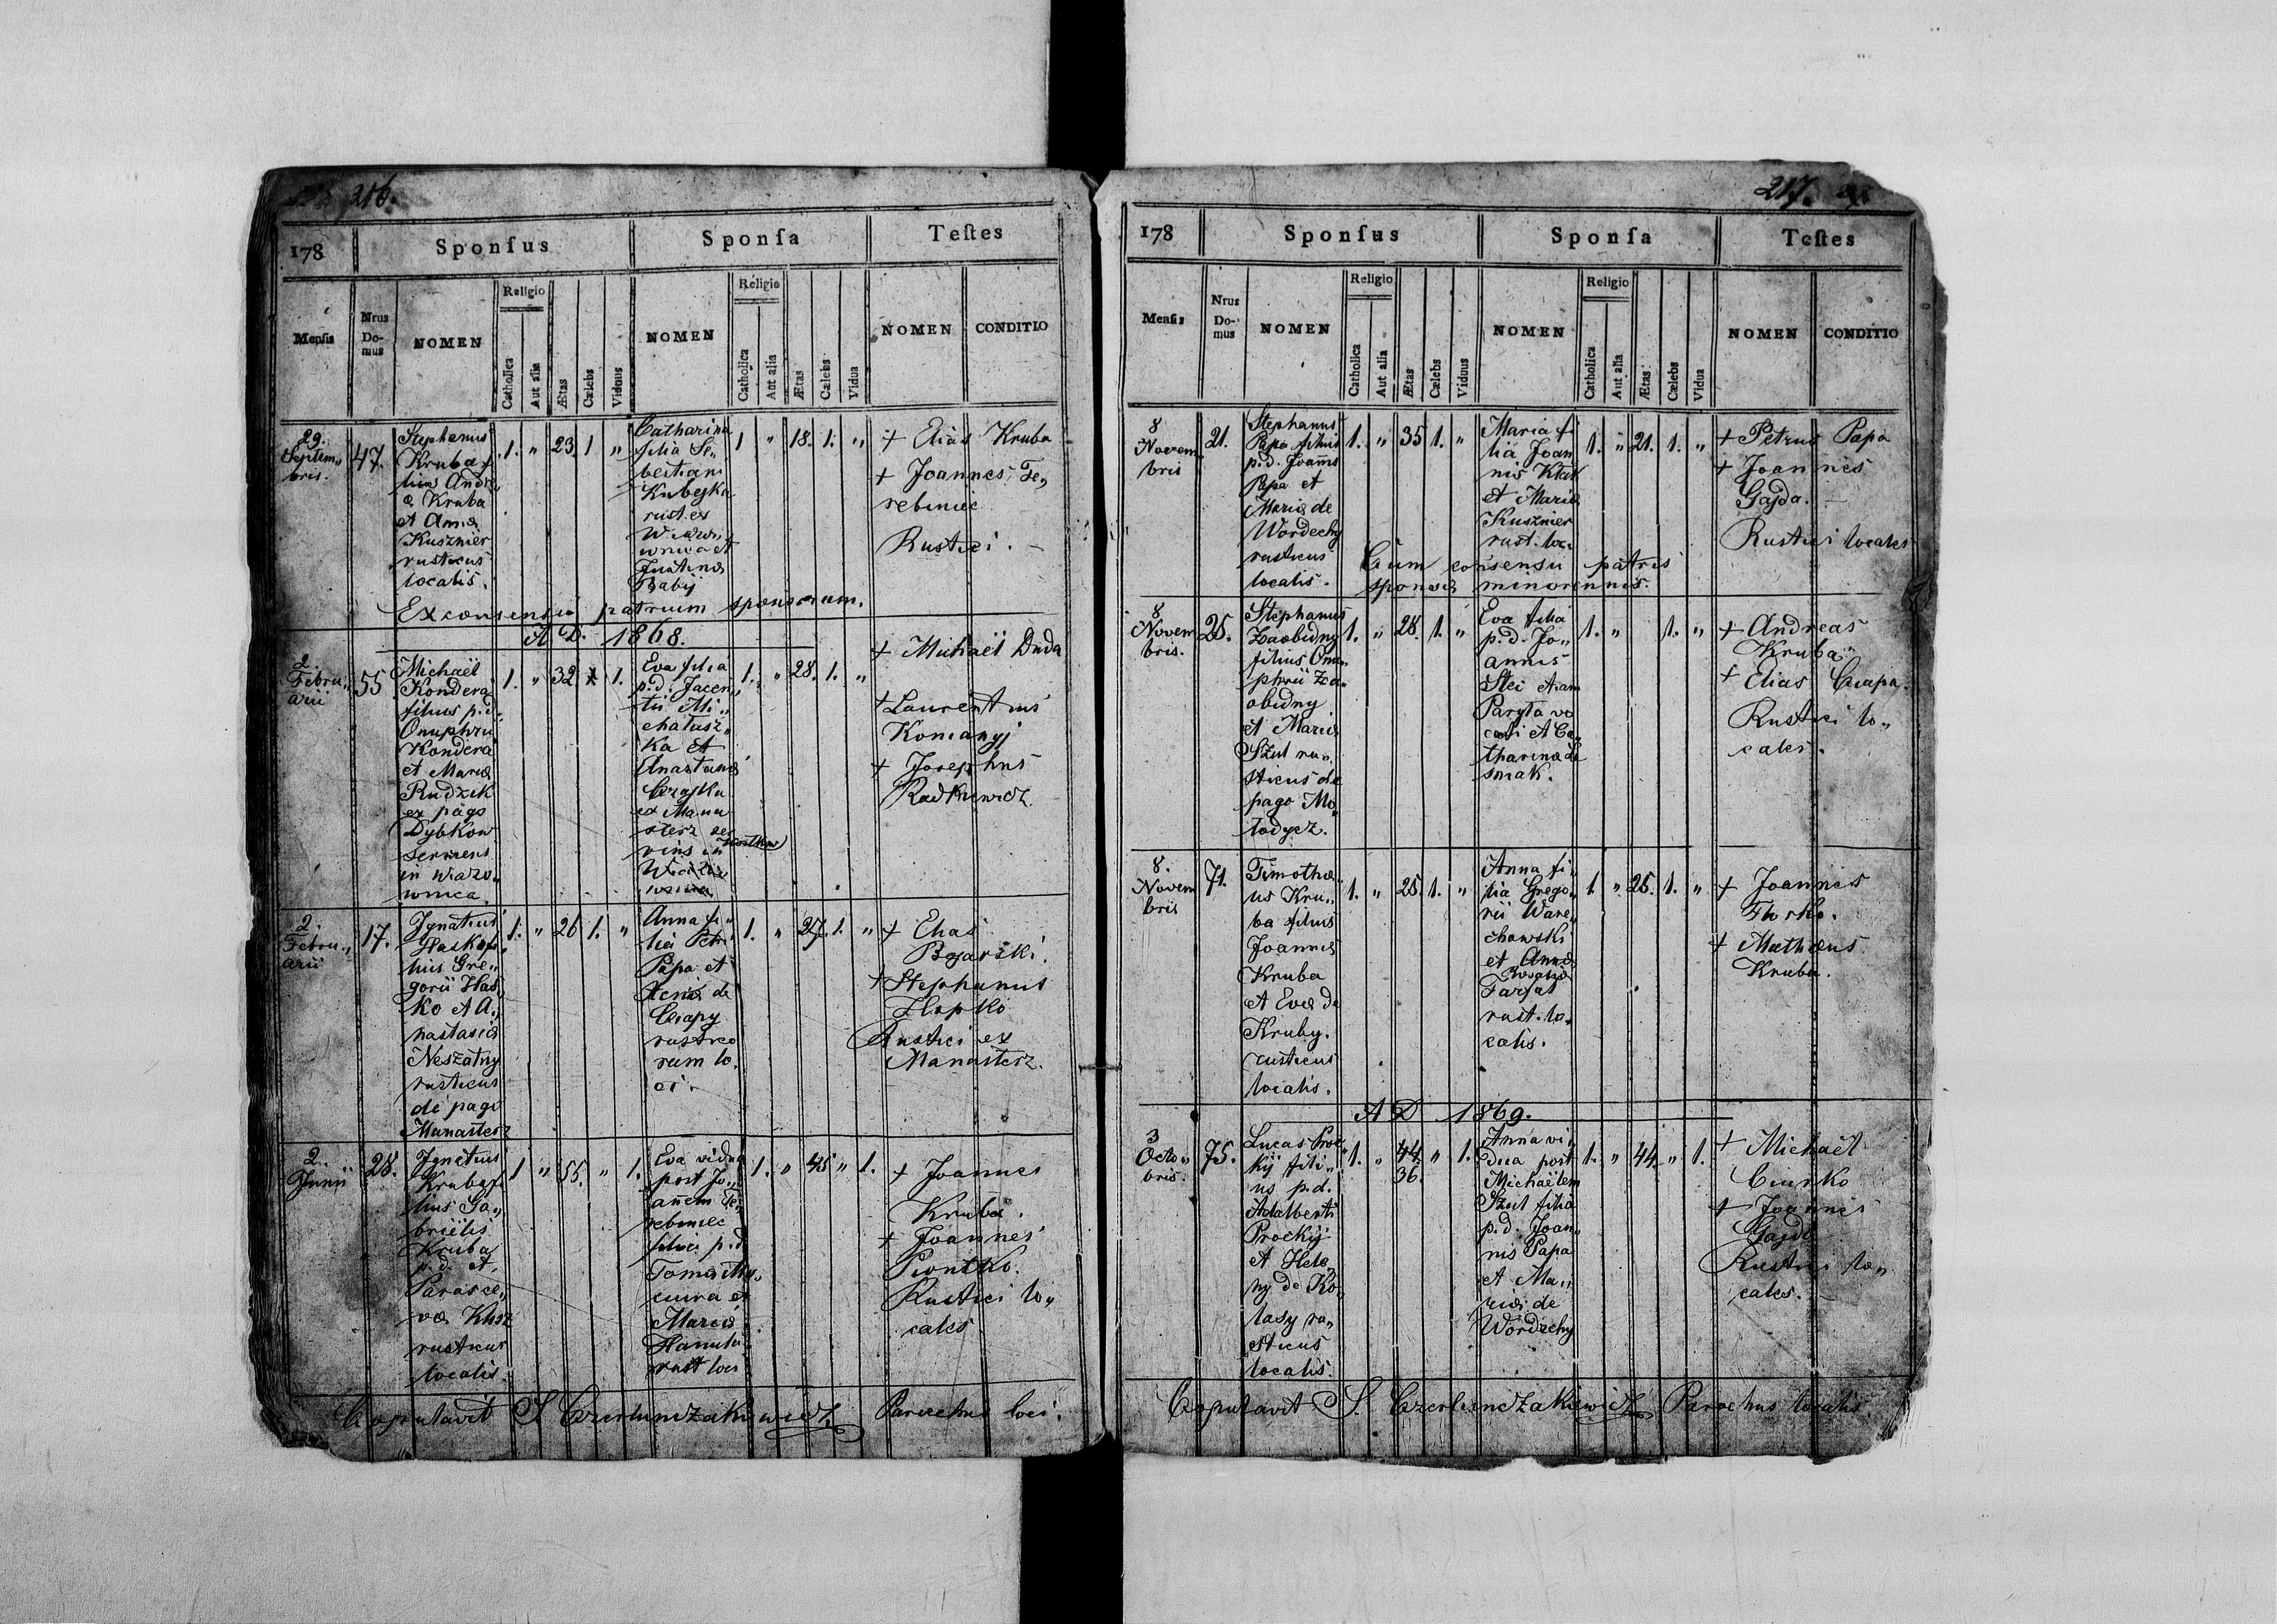 216.
178
Sponsus
Sponsa
Testes
Mensis
Nrus Do-mus
NOMEN
Religio
Catholica
Aut alia
Ætas
Cælebs
Viduus
NOMEN
Religio
Catholica
Aut alia
Ætas
Cælebs
Vidua
NOMEN
CONDITIO
29.
Septem„
bris.
47.
Stephanus
Kruba fi
lius Andre
æ Kruba
et Annæ
Kusznier
rusticus
localis.
1. „ 23. 1 „
Catharina
filia Se„
bastiani
Kubejka
rust. ex
Wiązo
wnica et
Justinæ
Babij
1 „ 18. 1. „
+ Elias Kruba
+ Joannes Te„
rebiniec
Rustici. —
Ex consensu patrum sponsorum.
A. D. 1868.
2.
Febru„
arii
55
Michaël
Kondera
filius p.d.
Onuphrii
Kondera
et Mariæ
Rudzik
ex pago
Dybkow
serviens
in Wiązo„
wnica.
1. „ 32. 1.
Eva filia
p.d. Jacen„
tii Mi„
chałasz„
ka et
Anastasiæ
Czajka
ex Mana
sterz ser
viens in
1. „ 28. 1. „
+ Michaël Duda
+ Laurentius
Komanyj
+ Josephus
Radkiewicz
2.
Febru„
arii
17.
Ignatius
Hasko fi„
lius Gre„
gorii Has„
ko et A„
nastasiæ
Neszatny
rusticus
de pago
Manasterz
1. „ 26 1. „
Anna fi„
lia Petri
Papa et
Xeniæ de
Ciapy
rustico
rum lo„
ci.
1. „ 27. 1. „
+ Elias
Bojarski.
+ Stephanus
Hopko
Rustici ex
Manasterz.
2.
Junii
28.
Ignatius
Kruba fi
lius Ga„
briëlis
Kruba
p.d. et
Parasce„
væ Kusz
rusticus
localis.
1 „ 55. „ 1.
Eva vidua
post Jo„
annem Te„
rebiniec
filia p.d.
Tomæ
et
Mariæ
rust loci
1. „ 45 „ 1.
+ Joannes
Kruba.
+ Joannes
Piontko.
Rustici lo„
cales
Copulavit S. Czerlunczakiewicz Parochus loci.
217.
178
Sponsus
Sponsa
Testes
Mensis
Nrus Do-mus
NOMEN
Religio
Catholica
Aut alia
Ætas
Cælebs
Viduus
NOMEN
Religio
Catholica
Aut alia
Ætas
Cælebs
Vidua
NOMEN
CONDITIO
8
Novem
bris
21.
Stephanus
Papa filius
p.d. Joannis
Papa et
Mariæ de
Wordechy
rusticus
localis.
1. „ 35 1. „
Maria fi
lia Joan
nis Ktak
et Mariæ
Kusznier
rust. loc.
1. „ 21. 1. „
+ Petrus Papa
+ Joannes
Gajda. —
Rustici locales
Cum consensu patris
sponsæ minorennis.
8
Novem
bris.
25.
Stephanus
Zaobidny
filius Onu„
phrii Za„
obidny
et Mariæ
Szul ru„
sticus de
pago Mo„
łodycz.
1. „ 28. 1. „
Eva filia
p.d. Jo„
annis
Stei etiam
Paryła vo
cati et Ca„
tharinæ Le
sniak.
1. „ 1. „
+ Andreas
Kruba
+ Elias Ciapa.
Rustici lo„
cales.
8.
Novem
bris
71.
Timothe„
us Kru„
ba filius
Joannis
Kruba
et Evæ de
Kruby.
rusticus
localis.
1. „ 25. 1. „
Anna fi„
lia Grego„
rii Ware„
chowski
et Annæ
Rosaliæ
Farfał
rust. lo„
calis.
1. „ 25. 1. „
+ Joannes
+ Mathæus
Kruba.
A D 1869.
3
Octo„
bris.
75.
Lucas Proc„
kij fili„
us p.d.
Adalberti
Prockij
et Hele„
ny de Ko„
łasy ru„
sticus
localis.
1. „ 44. „ 1.
36.
Anna vi„
dua post
Michaëlem
Szul filia
p.d. Joan„
nis Papa
et Ma„
riæ de
Wordechy
1. „ 44. „ 1.
+ Michaël
Ciurko
+ Joannes
Gajda
Rustici lo„
cales. —
Copulavit S. Czerlunczakiewicz Parochus localis.